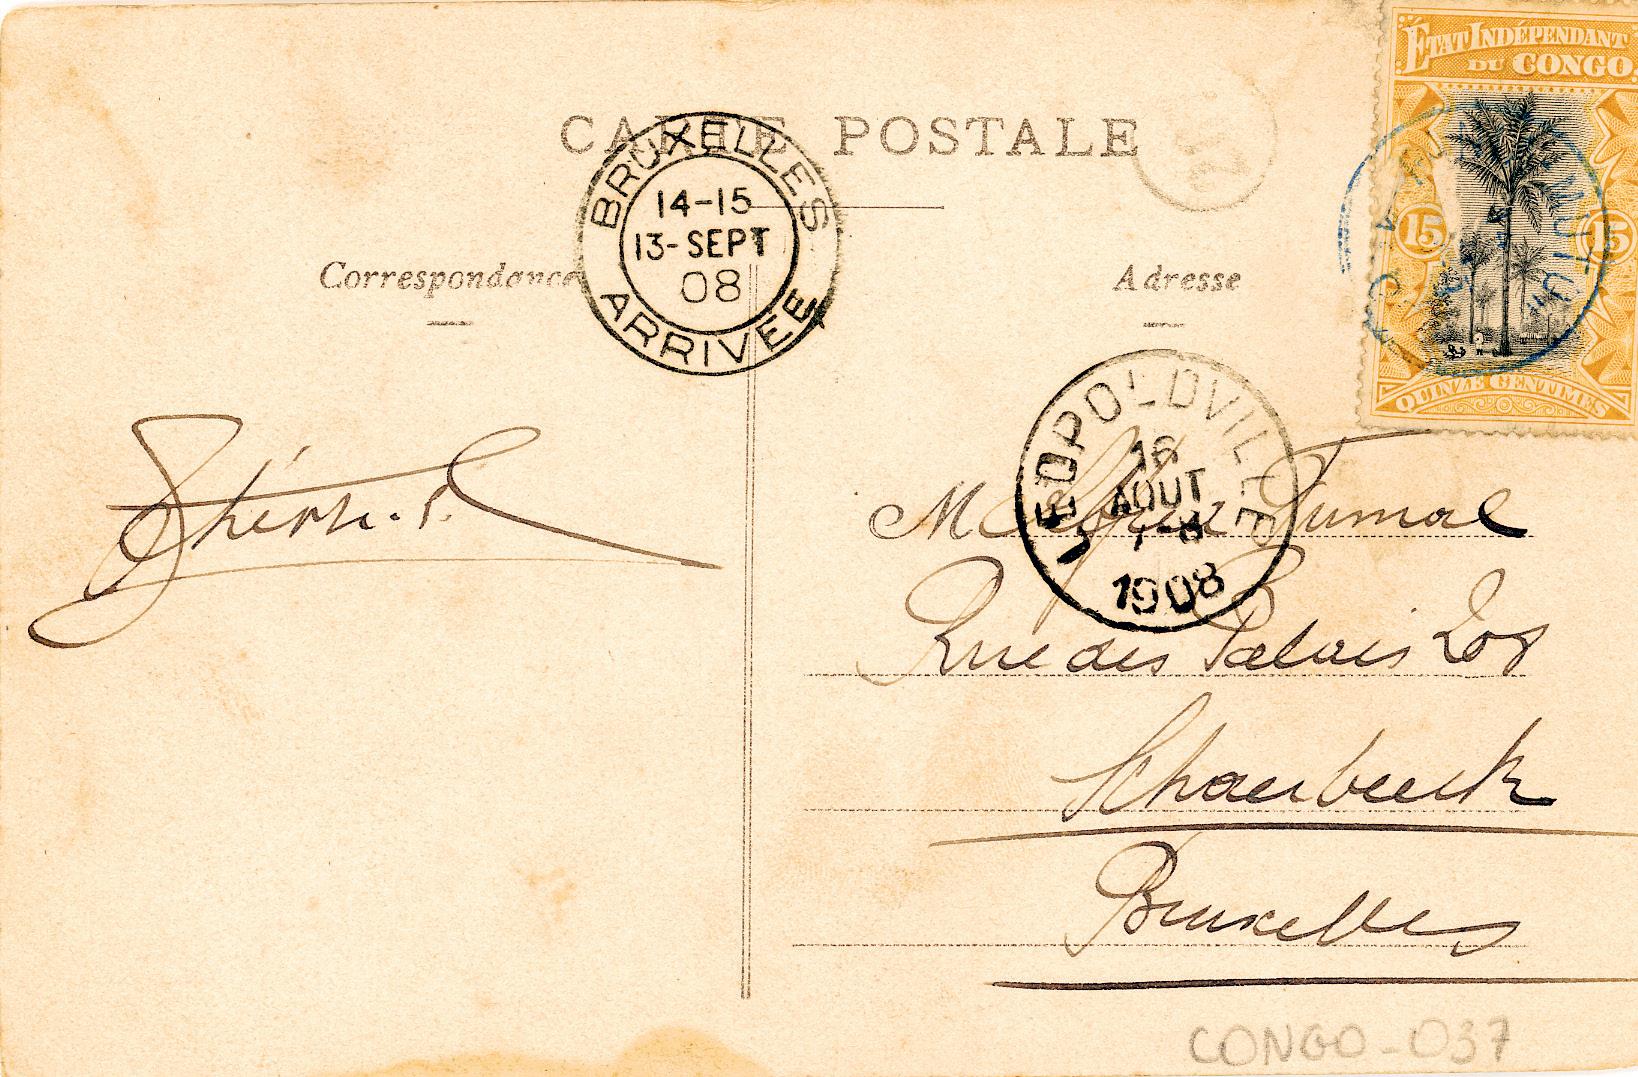 ÉTAT INDÉPENDANT
DU CONGO
15 15
QUINZE CENTIMES
CARTE POSTALE
BRUXELLES
14-15
13-SEPT
08
ARRIVÉE
Correspondance
Adresse
LEOPOLDVILLE
16
AOUT
7-8
1908
M Tumal
Rue des Palais 208
Schaerbeeck
Bruxelles
CONGO-037